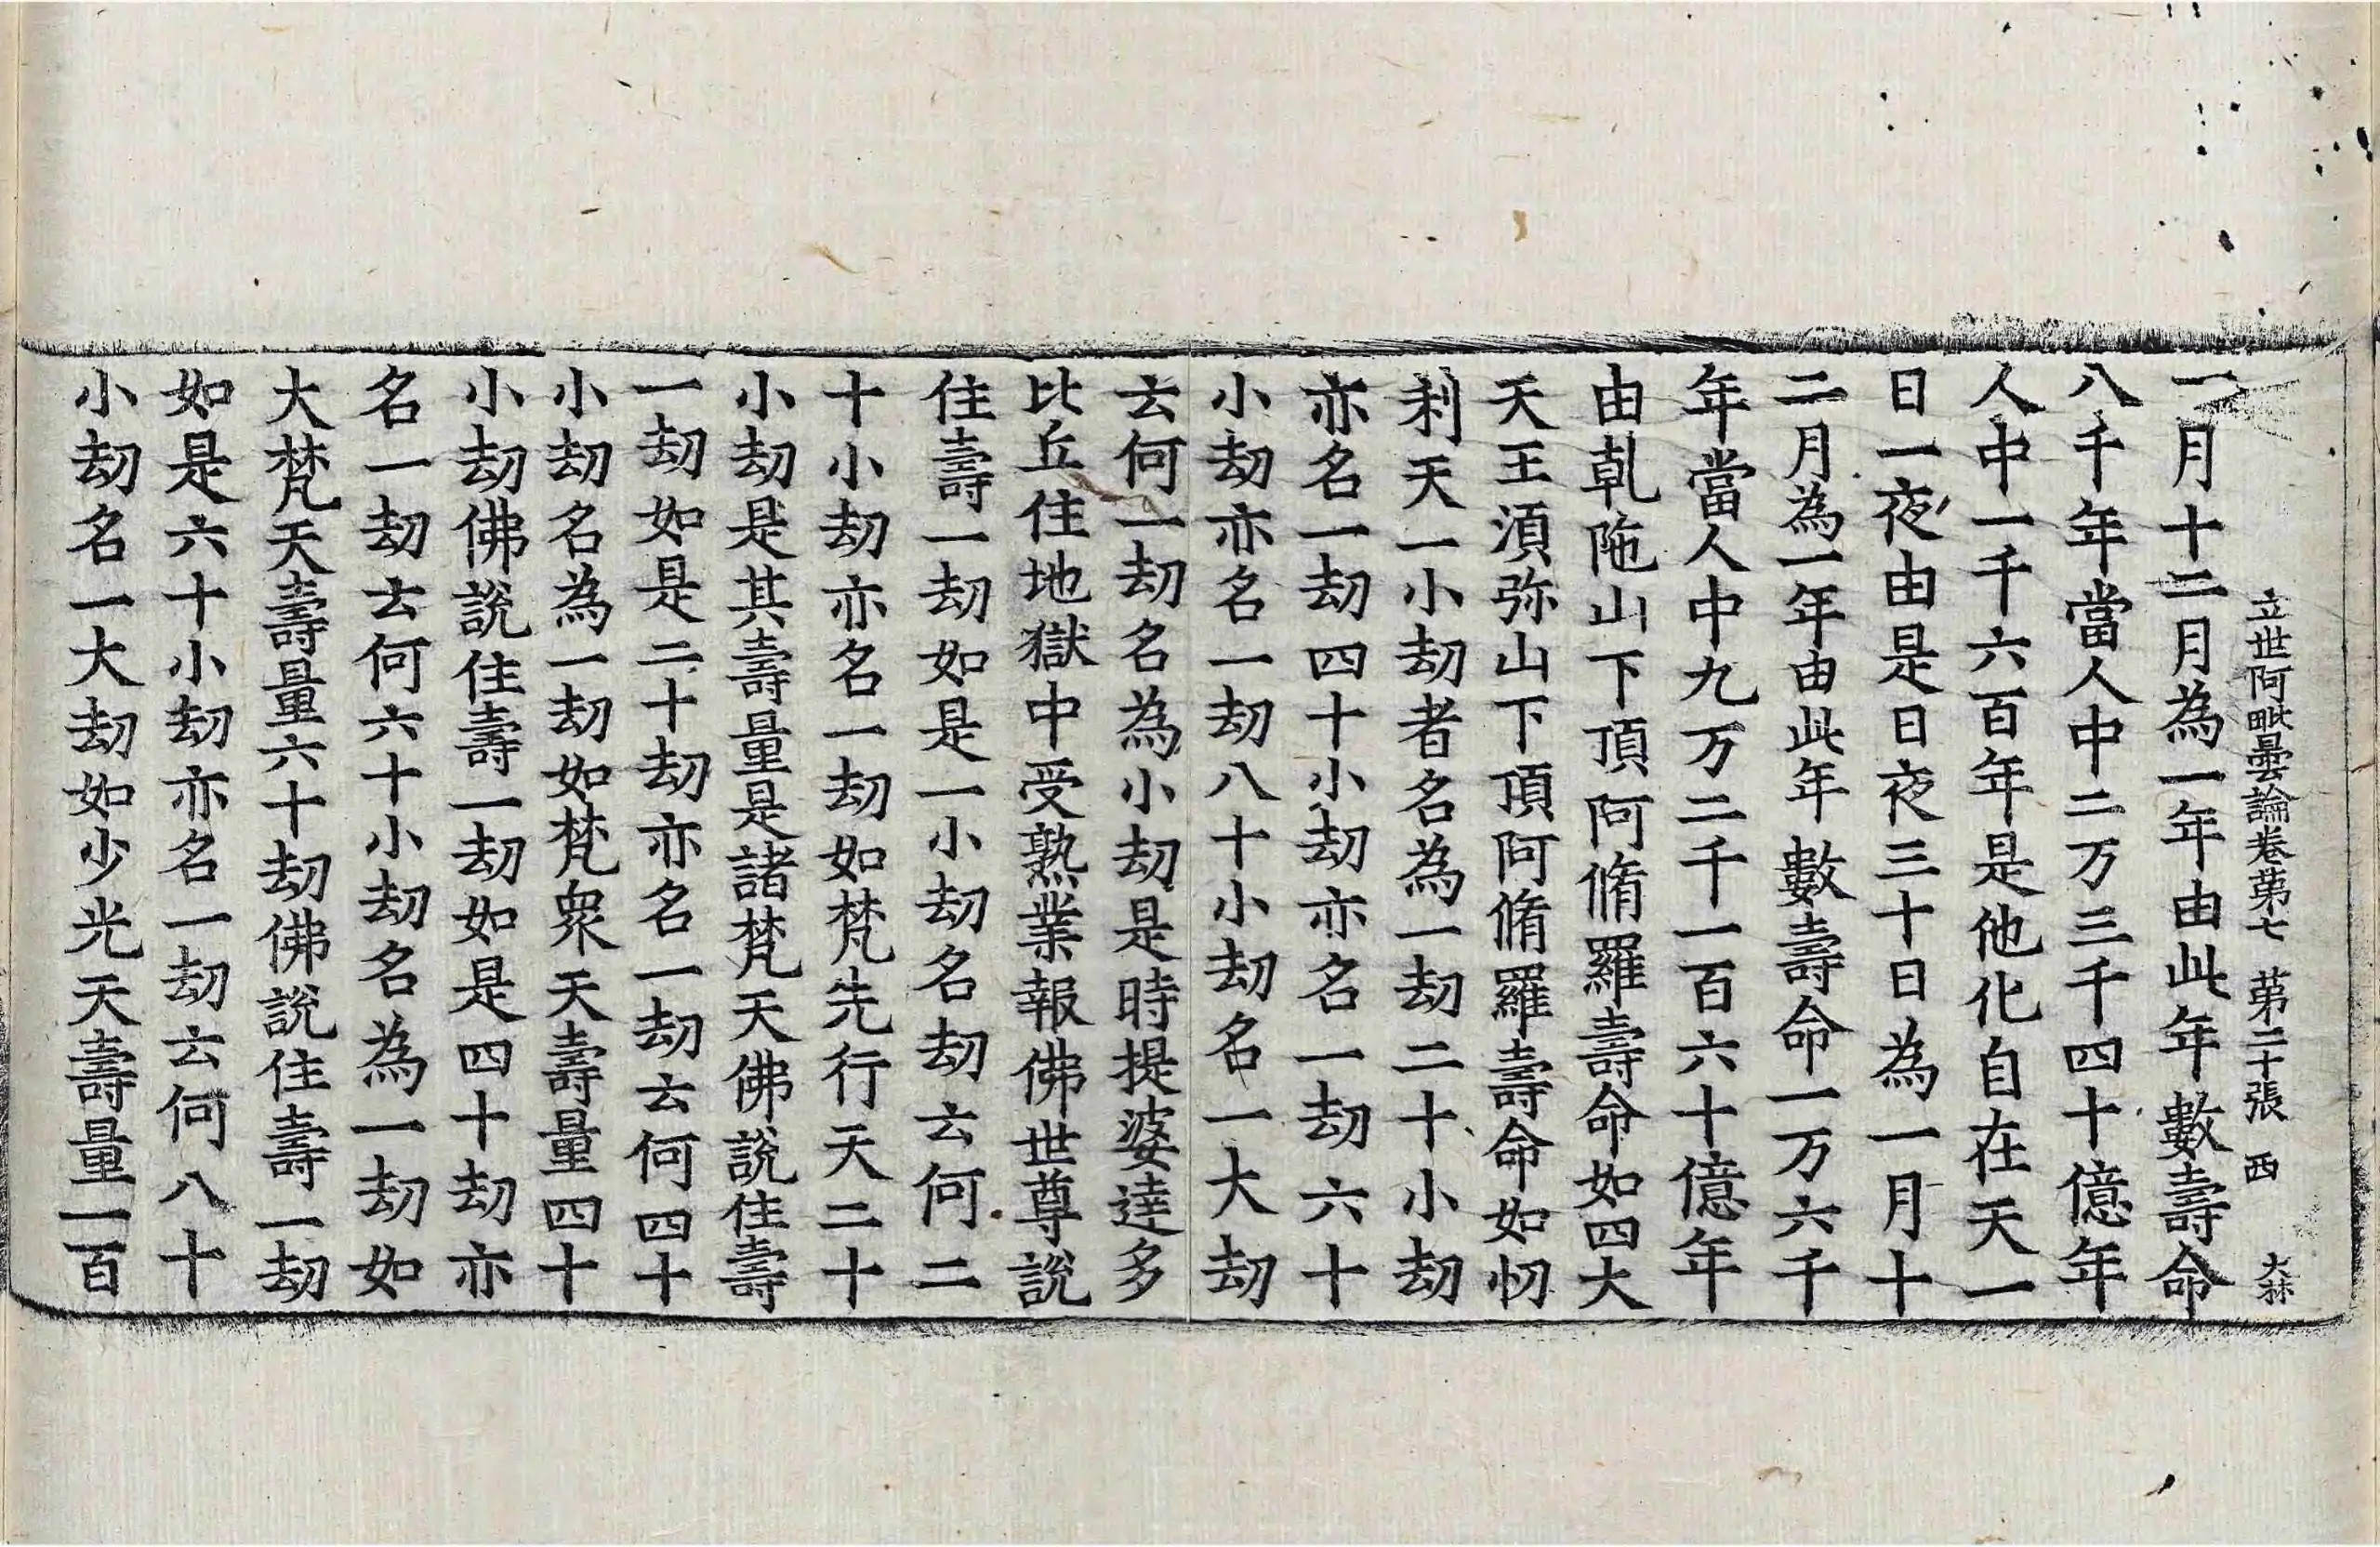 立世阿毗曇論卷第七 第二十張 西 大林
一月十二月為一年由此年數壽命
八千年當人中二万三千四十億年
人中一千六百年是他化自在天一
日一夜由是日夜三十日為一月十
二月為一年由此年數壽命一万六千
年當人中九万二千一百六十億年
由乹陁山下頂阿脩羅壽命如四大
天王湏弥山下頂阿脩羅壽命如忉
利天一小劫者名為一劫二十小劫
亦名一劫四十小劫亦名一劫六十
小劫亦名一劫八十小劫名一大劫
云何一劫名為小劫是時提婆達多
比丘住地獄中受熟業報佛世尊說
住壽一劫如是一小劫名劫云何二
十小劫亦名一劫如梵先行天二十
小劫是其壽量是諸梵天佛說住壽
一劫如是二十劫亦名一劫云何四十
小劫名為一劫如梵衆天壽量四十
小劫佛說住壽一劫如是四十劫亦
名一劫云何六十小劫名為一劫如
大梵天壽量六十劫佛說住壽一劫
如是六十小劫亦名一劫云何八十
小劫名一大劫如少光天壽量一百